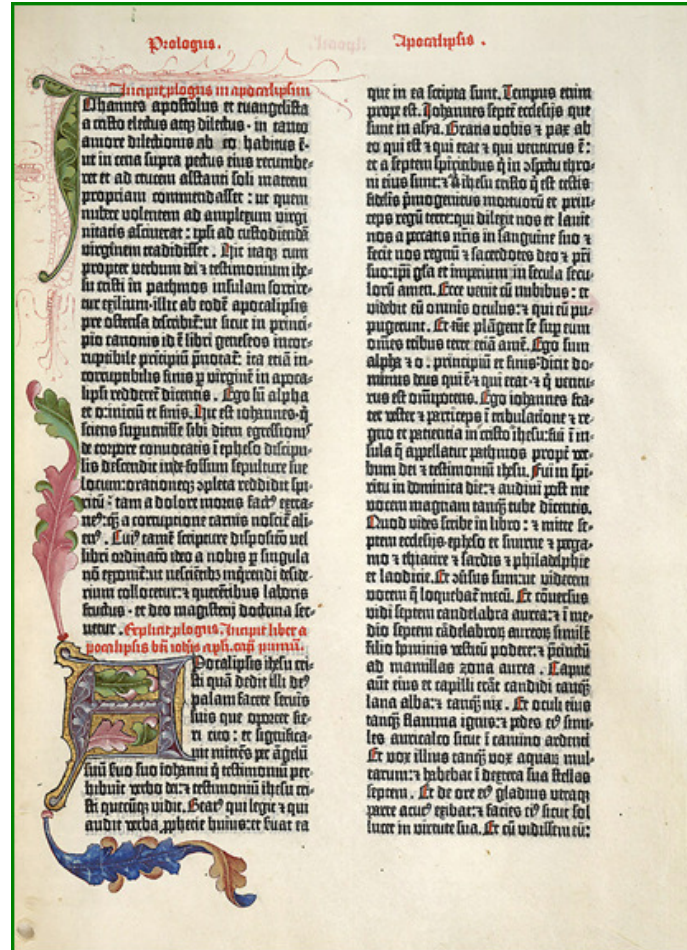 Prologus.
Apocalipsis.
Incipit plogus in apocalipsim
Johannes apostolus et euangelista
a cristo electus atqꝫ dilectus · in tanto
amore dilectionis ab eo habitus ē·
ut in cena supra pectus eius recumbe-
ret et ad crucem astanti soli matrem
propriam commendasset : ut quem
nubere volentem ad amplexum virgi
nitatis asciuerat : ipsi ad custodiendā
virginem tradidisset . Hic itaqꝫ cum
propter verbum dei ⁊ testimonium ihe-
su cristi in pathmos insulam sortire-
tur exilium · illic ab eodē apocalipsis
pre ostensa describit̄: ut sicut in princi-
pio canonis id ē libri geneseos incor-
ruptibile prīcipiū p̄notat̄: ita etiā in-
corruptibilis finis p̲ virginē in apoca-
lipsi redderet̄ dicentis . Ego sū alpha
et o: iniciū et finis. Hic est iohannes · q̇
sciens supuenisse sibi diem egressiōis
de corpore conuocatis ī epheso discipu-
lis descendit in defossum sepulture sue
locum: orationeqꝫ ↄpleta reddidit spi-
ritū : tam a dolore mortis fact⁹ extra-
ne⁹: qꝫ̄ a corruptione carnis noscit̄ ali-
en⁹ . Cui⁹ tamē scripture dispositō uel
libri ordinatō ideo a nobis p̲ singula
nō exponit̄: ut nescientibꝫ inq̇rendi deside-
rium collocetur: ⁊ querētibus laboris
fructus · et deo magisterij doctrina ser-
uetur . Explicit plogus. Incipit liber a
pocalipsis bti iohīs apli. capm̄ primū.
Apocalipsis ihesu cri-
sti quā dedit illi de⁹
palam facere seruis
suis que oportet fie-
ri cito : et significa-
uit mittēs per āgelū
suū seruo suo iohanni q̇ testimoniū per-
hibuit verbo dei: ⁊ testimoniū ihesu cri-
sti quecūqꝫ vidit. Beat⁹ qui legit ⁊ qui
audit verba p̲phecie huius: et seruat ea
que in ea scripta sunt. Tempus enim
prope est. Johannes septē ecclesijs que
sunt in asya. Gratia vobis ⁊ pax ab
eo qui est ⁊ qui erat ⁊ qui venturus ē:
et a septem spiritibus q̇ in ↄspectu thro-
ni eius sunt: ⁊ a ihesu cristo q̇ est testis
fidelis p̄mogenitus mortuorū et prin-
ceps regū terre: qui dilexit nos et lauit
nos a peccatis nr̄is in sanguine suo ⁊
fecit nos regnū ⁊ sacerdotes deo ⁊ pr̄i
suo: ip̄i gl̄a et imperium in secula secu-
lorū amen. Ecce venit cū nubibus: et
videbit eū omnis oculus: ⁊ qui eū pu-
pugerunt. Et tūc plāgent se sup eum
omnes tribus terre etiā amē. Ego sum
alpha ⁊ o . principiū et finis: dicit do-
minus deus qui ē ⁊ qui erat · ⁊ q̇ ventu-
rus est om̄ipotens. Ego iohannes fra-
ter vester ⁊ particeps ī tribulatione ⁊ re-
gno et paciencia in cristo ihesu: fui ī in-
sula q̄ appellatur pathmos propt̄ ver-
bum dei ⁊ testimoniū ihesu. Fui in spi-
ritu in dominica die: ⁊ audiui post me
vocem magnam tanqꝫ tube dicentis.
Quod vides scribe in libro : ⁊ mitte se-
ptem ecclesijs epheso et smirne ⁊ perga-
mo ⁊ thiatire ⁊ sardis ⁊ philadelphie
et laodicie. Et ↄūsus sum: ut viderem
vocem q̄ loquebat̄ mecū. Et cōuersus
vidi septem candelabra aurea: ⁊ ī me-
dio septem cādelabroꝝ aureoꝝ similē
filio hominis vestitū podere: ⁊ p̄cinctū
ad mamillas zona aurea . Caput
aūt eius et capilli erāt candidi tanqꝫ
lana alba: ⁊ tanqꝫ nix . Et oculi eius
tanqꝫ flamma ignis: ⁊ pedes ei⁹ simi-
les auricalco sicut ī camino ardenti
Et vox illius tanqꝫ vox aquaꝝ mul-
tarum: ⁊ habebat ī dextera sua stellas
septem . Et de ore ei⁹ gladius utraqꝫ
parte acut⁹ exibat: ⁊ facies ei⁹ sicut sol
lucet in virtute sua. Et cū vidissem eū: